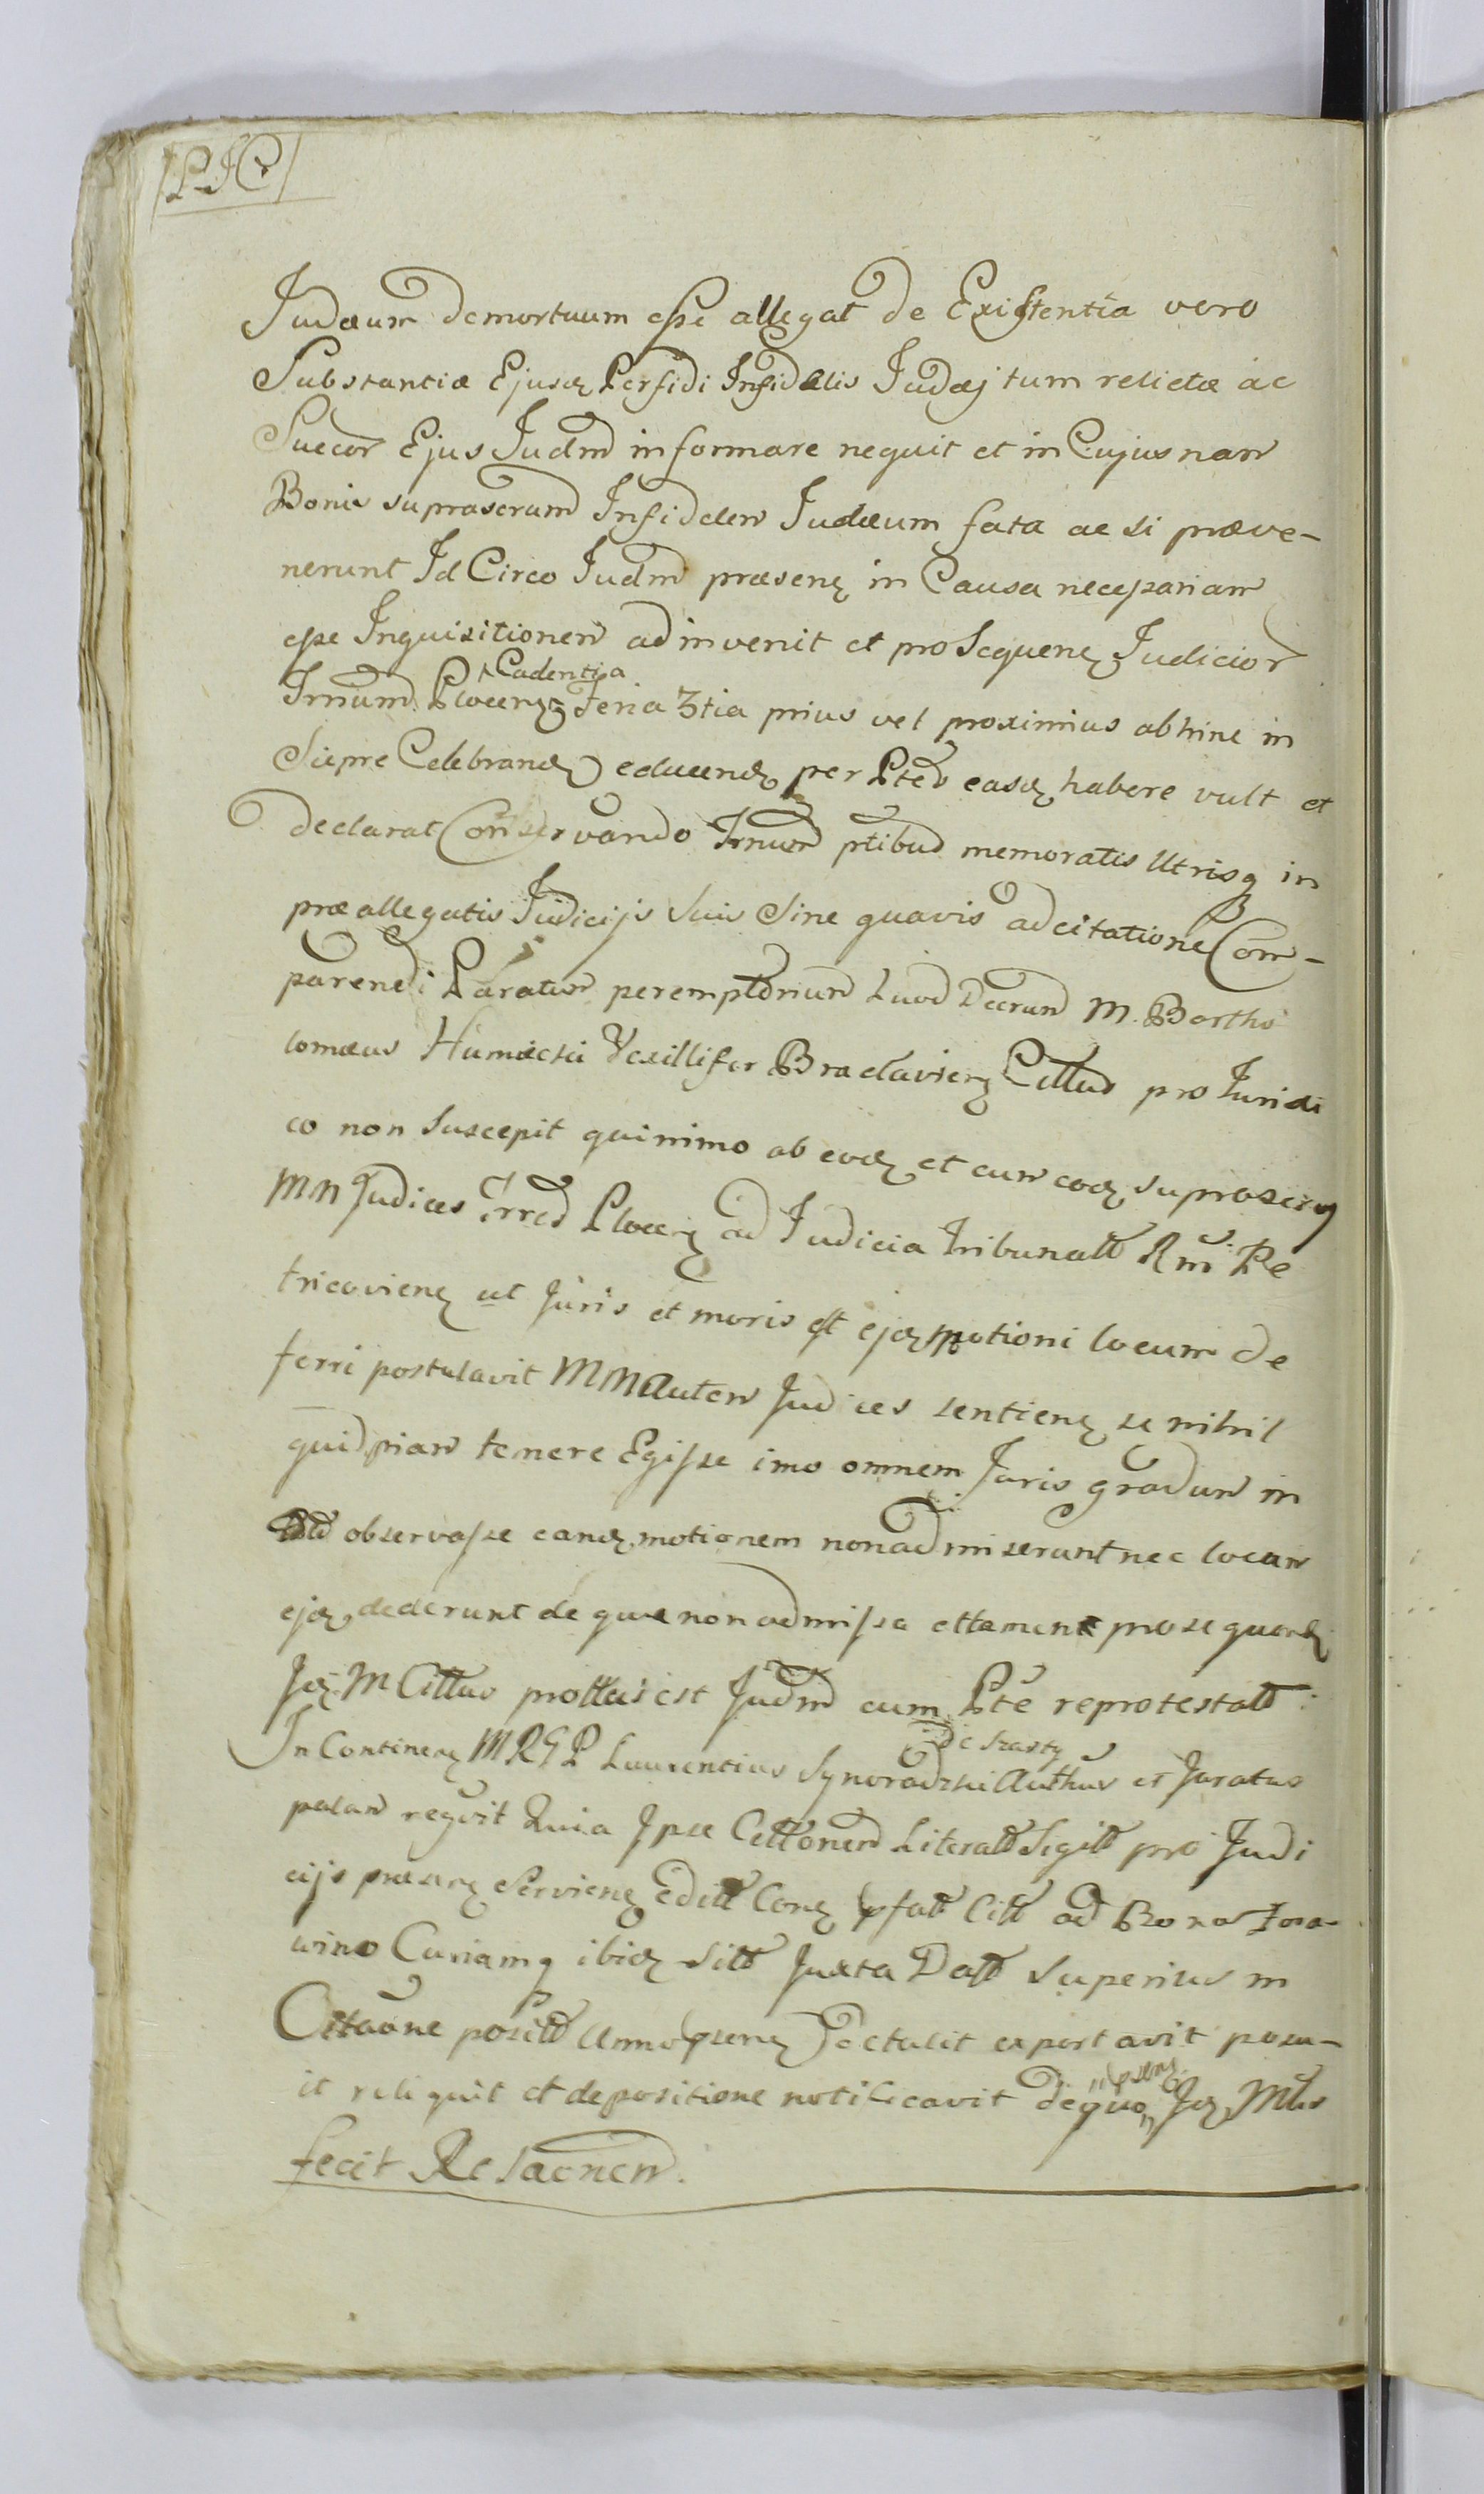 Judæum demortuum esse allegat de Existentia vero
Substantiæ Ejusq Perfidi Infidelis Judæj tum relictæ ac
Succor Ejus Judm informare nequit et in Cujusnam
Bonis suprascrum Infidelem Judæum fata ac si præve-
nerunt Id Circo Judm præsenę in Causa necessariam
esse Inquisitionem adinvenit et pro Sequenę Judicior
Cadentia
Trrium Plocenę Feria 3tia prius vel proximius abhinc in
Sierpc Celebrandę educendę per Ptes easdę habere vult et
declarat Conservando Trnum ptibus memoratis Utrisq in
præallegatis Judicijs suis Sine quavis adcitatione Com-
parendi Paratum peremptorium Quod Decrum M. Bartho
lomæus Humięcki Vexillifer Braclavienę Cittus pro Juridi
co non suscepit quinimo ab eodę et cum eodę supraser
MM Judices Trres Plocenę ad Judicia Tribunall Rni Pe
tricovienę ut Juris et moris est ejdę motioni locum de
ferri postulavit MM Autem Judices sentienę se nihil
quidpiam temere Egisse imo omnem Juris gradum in
observasse eandę motionem non admiserunt nec locum
ejdę dederunt de qua non admissa attamen prosequendę
Idę M Cittus prottus est Judm cum Pte reprotestatt:
De Szasty
In Continenę MRGP Laurentius Synoradzki Authus et Juratus
palam reqvit Quia Ipse Cittonem Literalt Sigilt pro Judi
cijs præsenę Servienę Editt Conę pfatt Citt ad Bona
wino Curiamq ibidę sitt Juxta Datt superius in
Cittaone positt Anno psenę Detulit exportavit posu-
psens
it reliquit et depositione notificavit de quo Idę Mtus
fecit Relaonem.